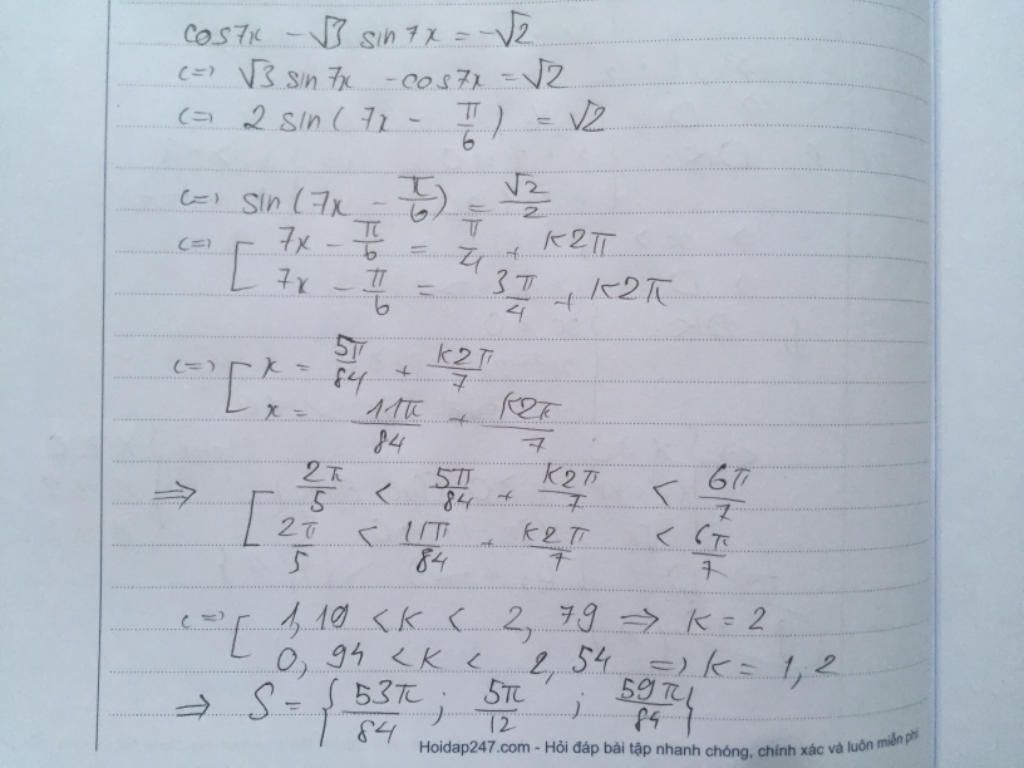 cos7x - √3 sin7x = -√2
<=> √3 sin7x - cos7x = √2
<=> 2 sin( 7x - π/6 ) = √2
<=> sin(7x - π/6) = √2/2
<=> [ 7x - π/6 = π/4 + k2π
7x - π/6 = 3π/4 + k2π
<=> [ x = 5π/84 + k2π/7
x = 11π/84 + k2π/7
=> [ 2π/5 < 5π/84 + k2π/7 < 6π/7
2π/5 < 11π/84 + k2π/7 < 6π/7
<=> [ 1,19 < k < 2,79 => k = 2
0,94 < k < 2,54 => k = 1,2
=> S = { 53π/84 ; 5π/12 ; 59π/84 }
Hoidap247.com - Hỏi đáp bài tập nhanh chóng, chính xác và luôn miễn phí